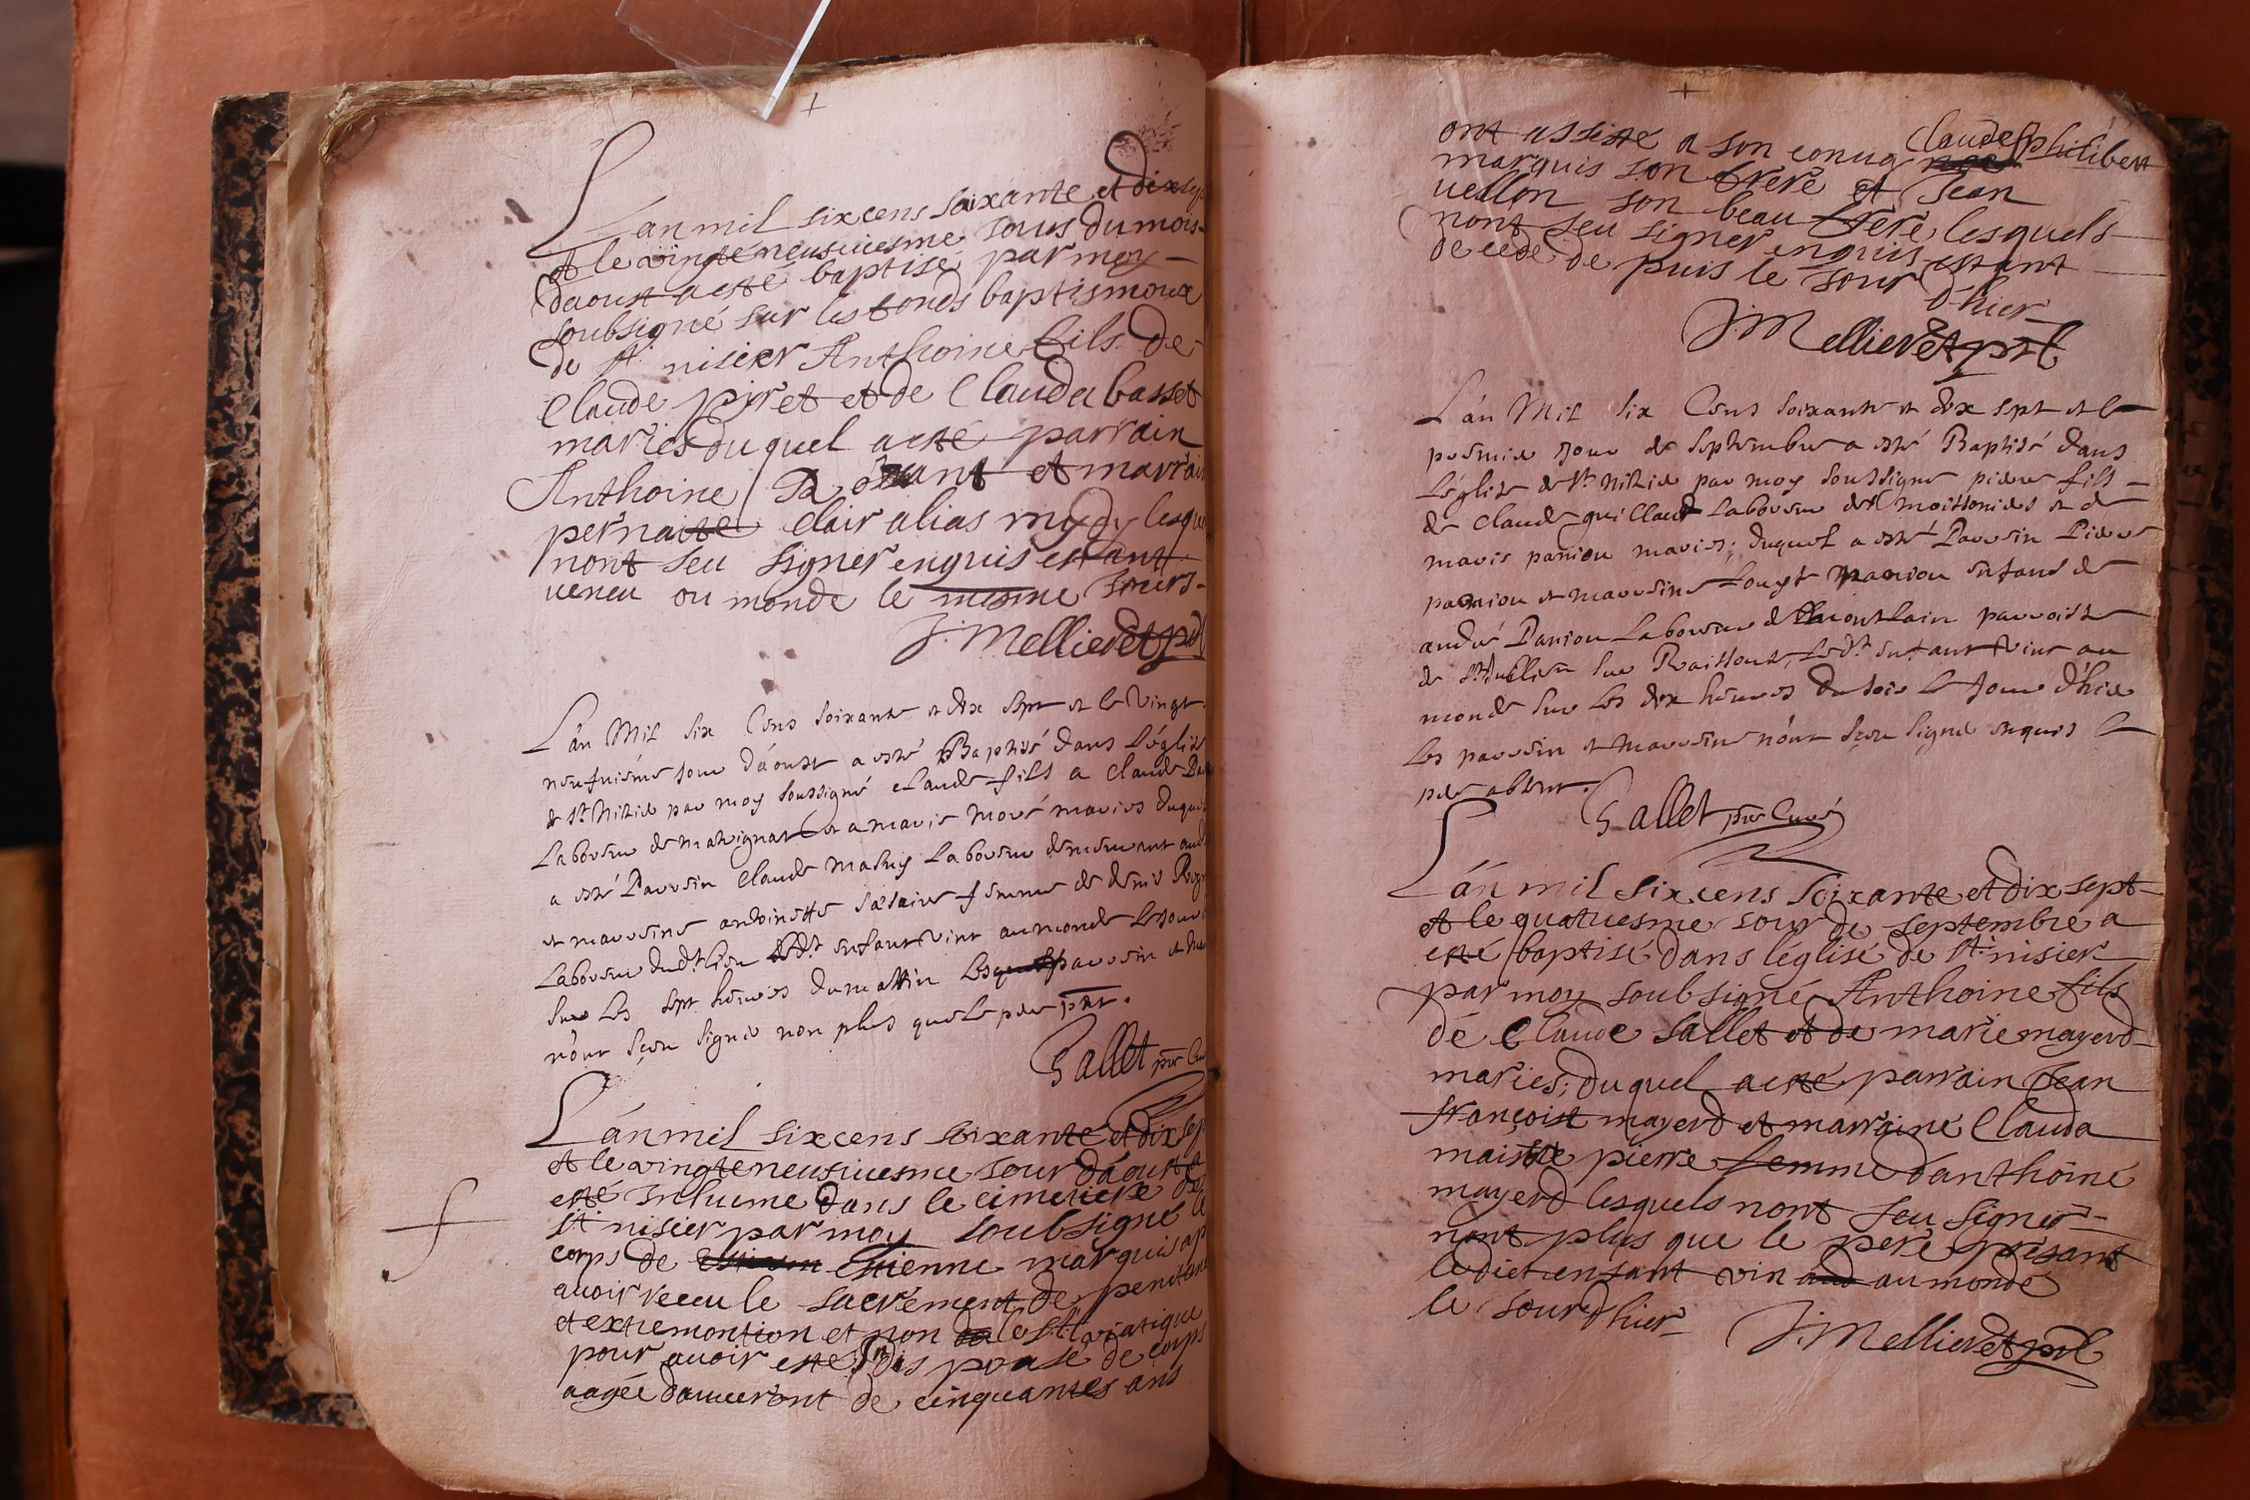 L'an mil six cens soixante et dix sep
et le vingte neufviesme jours du mois
daoust a esté baptisé par moy
soubsigné sur les fonds baptismoux
de st nisier Anthoine fils de
Claude piret et de Clauda basset
maries duquel a esté parrain
Anthoine et marrain
pernaite clair alias lesque
nont seu signer enquis estant
veneu ou monde le mesme jours
J. Mellieret
L'an Mil six Cens soixante et dix sept et le vingt
neufuiéme jour d'aoust a esté Baptisé dans l'églis
de St Nizier par moy soussigné claude fils a claude
Laboureur de et a marie moré mariés duque
a esté Parrain Claude mathy Laboureur demeurant
et marraine antoinette femme de denis
Laboureur dud.t lieu led.t enfant vint au monde le jour
sur les sept heures du mattin parrain et
n'ont sçeu signer non plus que le pere pnt.
Gallet ptre Cu
L'an mil six cens soixante et dix sep
et le vingte neusviesme jour daoust a
esté inhume dans le cimetiere de
st nisier par moy soubsigné le
corps de Estienne marquis ap
avoir receu le sacrement de penitance
et extremontion et non le st viatique
pour avoir esté de corps
aagée de cinquantes ans
+
ont assisté a son conuoy claude philibert
marquis son frere et Jean
vellon son beau frere lesquels
nont seu signer enquis estant
decede de puis le jour d'hier
J. Mellieret
L'an Mil six Cens soixante et dix sept et le
premier jour de septembre a esté Baptisé dans
L'église de St Nizier par moy soussigné pierre fils
de claude guillaud laboureur des et de
marie paniou mariés; duquel a esté Parrain Pierre
paniou et marraine paniou enfans de
andré Paniou Laboureur de parroisse
de St Jullien sur Raissouse, led.t enfant vint au
monde sur les dix heures du soir le jour d'hier
Les parrain et marraine n'ont sçeu signer enquis le
pere absent.
Gallet ptre Curé
L'an mil six cens soixante et dix sept
et le quatriesme jour de septembre a
esté baptisé dans l'église de st nisier
par moy soubsigné Anthoine fils
de Claude sallet et de marie mayerd
maries; duquel a esté parrain Jean
françoist mayerd et marraine Clauda
maistre pierre femme danthoine
mayerd lesquels nont seu signer
nont plus que le pere présant
le dict ensant vin au monde
le jour d'hier
J. Mellieret